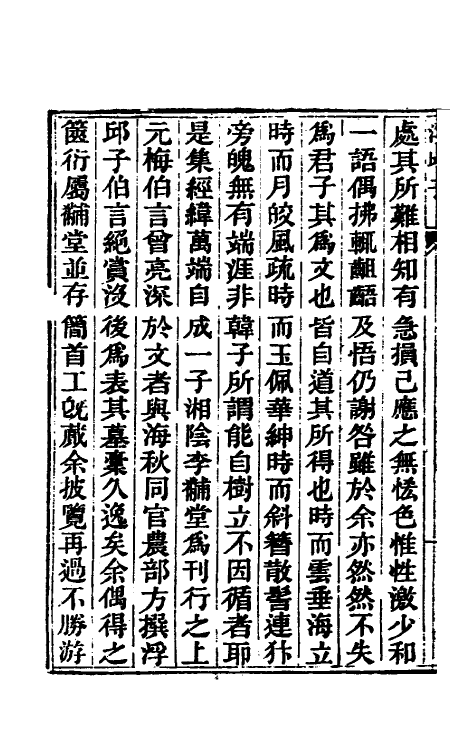 處其所難相知有急損己應之無恡色惟性激少和
一語偶拂輒齟齬及悟仍謝咎雖於余亦然然不失
為君子其為文也皆自道其所得也時而雲垂海立
時而月皎風疏時而玉佩華紳時而斜簪散髻連犿
旁魄無有端涯非韓子所謂能自樹立不因循者耶
是集經緯萬端自成一子湘陰李黼堂為刊行之上
元梅伯言曾亮深於文者與海秋同官農部方撰浮
邱子伯言絕賞沒後為表其墓藳久逸矣余偶得之
篋衍屬黼堂並存簡首工旣蕆余披覽再過不勝游